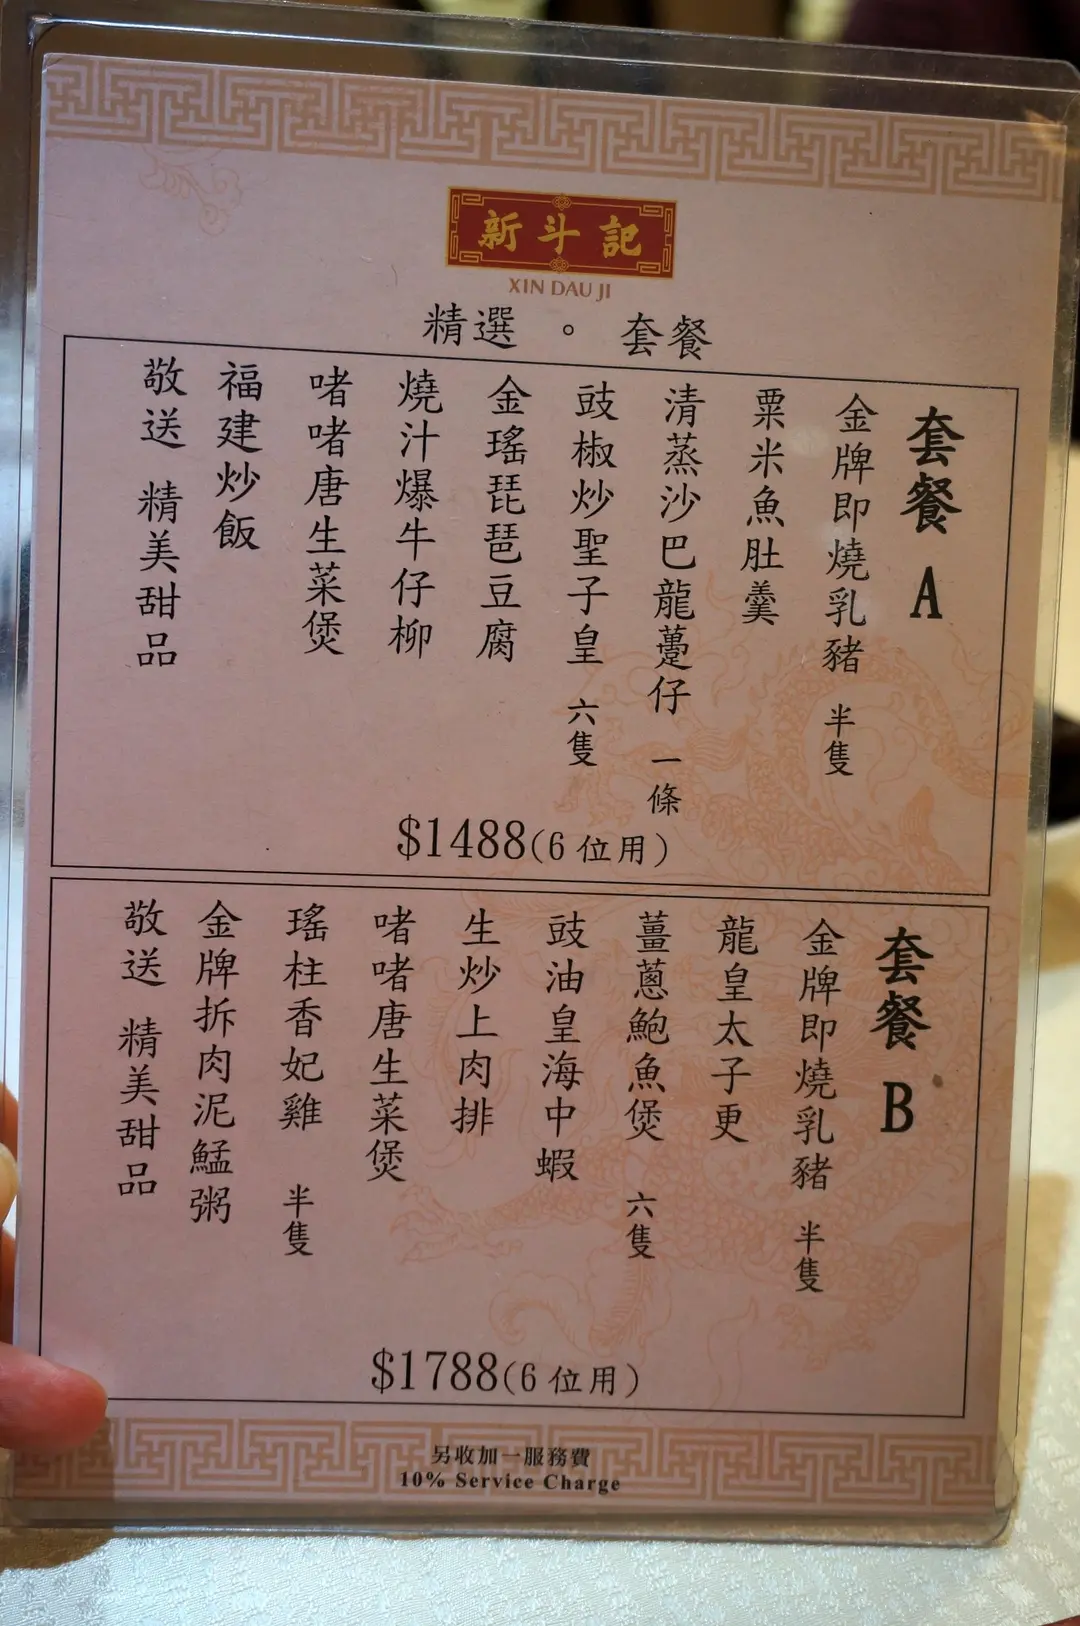 新斗記
XIN DAU JI
精選 。 套餐
套餐 A
金牌即燒乳豬 半隻
粟米魚肚羹
清蒸沙巴龍躉仔 一條
豉椒炒聖子皇 六隻
金瑤琵琶豆腐
燒汁爆牛仔柳
啫啫唐生菜煲
福建炒飯
敬送 精美甜品
$1488(6 位用)
套餐 B
金牌即燒乳豬 半隻
龍皇太子更
薑蔥鮑魚煲 六隻
豉油皇海中蝦
生炒上肉排
啫啫唐生菜煲
瑤柱香妃雞 半隻
金牌拆肉泥鯭粥
敬送 精美甜品
$1788(6 位用)
另收加一服務費
10% Service Charge